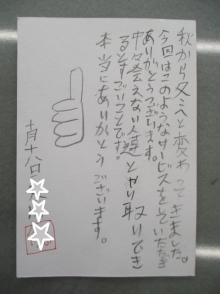 秋から冬へと変わってきました。
今回はこのようなサービスをしていただき
ありがとうございます。
中々会えない人達とやり取りでき
るとすごいことです。
本当にありがとうございます。
十月十八日